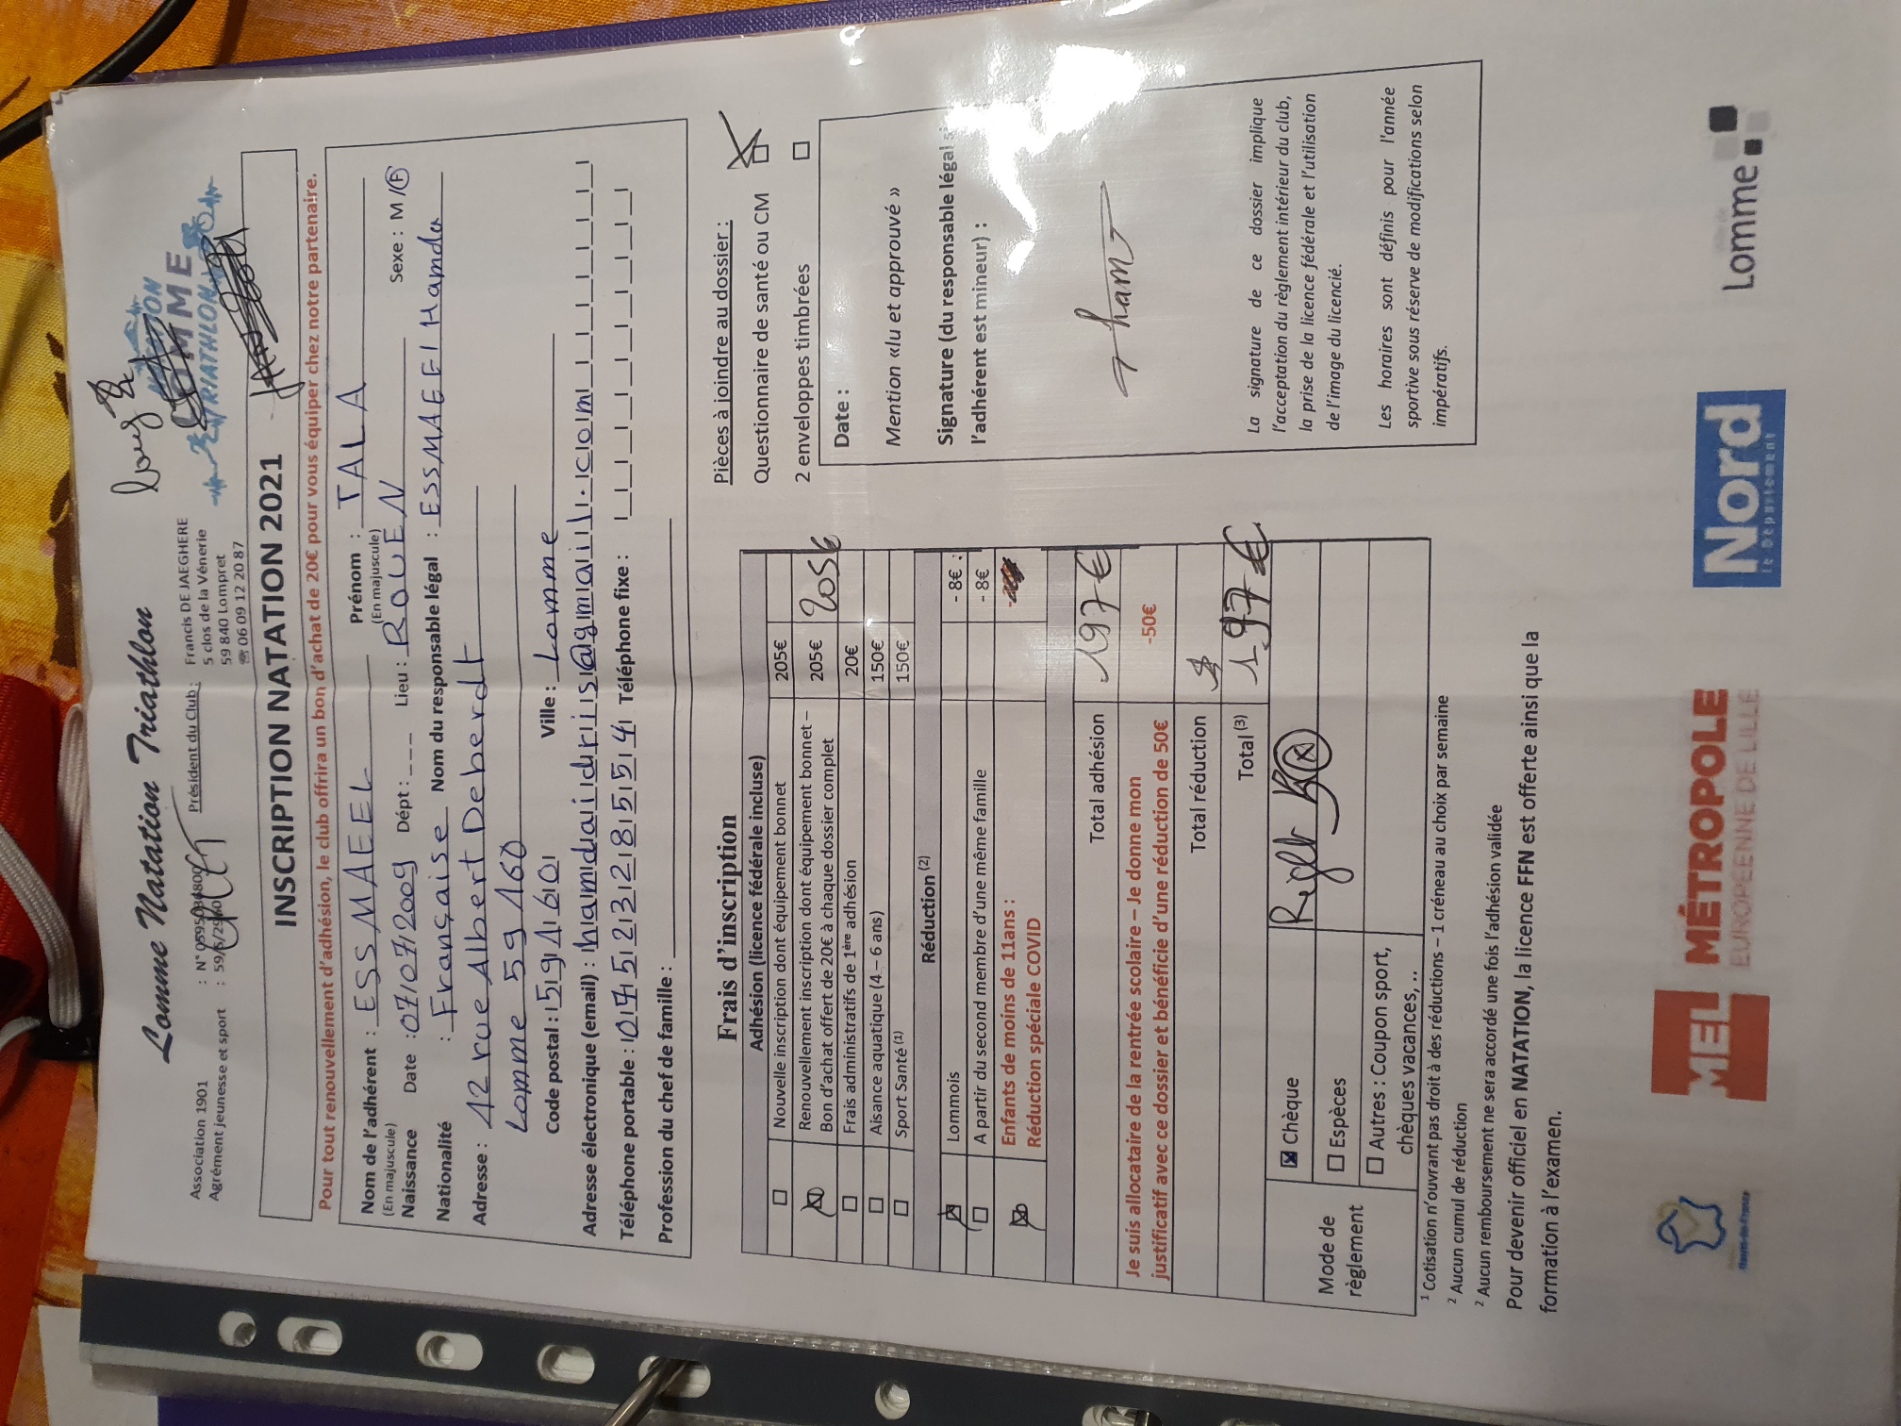 Lomme Natation Triathlon
Association 1901 : N° Président du Club : Francis DE JAEGHERE
Agrément jeunesse et sport : 5 clos de la Vénerie
59 840 Lompret
☎ 06 09 12 20 87
LOMME
TRIATHLON
INSCRIPTION NATATION 2021
Pour tout renouvellement d'adhésion, le club offrira un bon d'achat de 20€ pour vous équiper chez notre partenaire.
Nom de l'adhérent : ESSMAEEL Prénom : TALA
(En majuscule) (En majuscule)
Naissance Date : 07/07/2009 Dépt : _ _ _ Lieu : ROUEN Sexe : M / F
Nationalité : Française Nom du responsable légal : ESSMAEEl Hamda
Adresse : 42 rue Albert Deberdt
Lomme 59160
Code postal : 59460 Ville : Lomme
Adresse électronique (email) : hamdaidris@gmail.com
Téléphone portable : 0752328554 Téléphone fixe :
Profession du chef de famille :
Frais d'inscription
Adhésion (licence fédérale incluse)
Nouvelle inscription dont équipement bonnet 205€
Renouvellement inscription dont équipement bonnet – 205€ 205€
Bon d'achat offert de 20€ à chaque dossier complet
Frais administratifs de 1ère adhésion 20€
Aisance aquatique (4 – 6 ans) 150€
Sport Santé (1) 150€
Réduction (2)
Lommois - 8€
A partir du second membre d'une même famille - 8€
Enfants de moins de 11ans :
Réduction spéciale COVID
Total adhésion 197€
Je suis allocataire de la rentrée scolaire – Je donne mon
justificatif avec ce dossier et bénéficie d'une réduction de 50€ -50€
Total réduction
Total (3) 197€
Mode de règlement
Chèque
Espèces
Autres : Coupon sport,
chèques vacances,…
Pièces à joindre au dossier :
Questionnaire de santé ou CM
2 enveloppes timbrées
Date :
Mention «lu et approuvé »
Signature (du responsable légal si
l'adhérent est mineur) :
La signature de ce dossier implique
l'acceptation du règlement intérieur du club,
la prise de la licence fédérale et l'utilisation
de l'image du licencié.
Les horaires sont définis pour l'année
sportive sous réserve de modifications selon
impératifs.
1 Cotisation n'ouvrant pas droit à des réductions – 1 créneau au choix par semaine
2 Aucun cumul de réduction
2 Aucun remboursement ne sera accordé une fois l'adhésion validée
Pour devenir officiel en NATATION, la licence FFN est offerte ainsi que la
formation à l'examen.
Hauts-de-France
MEL
MÉTROPOLE
EUROPÉENNE DE LILLE
Nord
le Département
Lomme